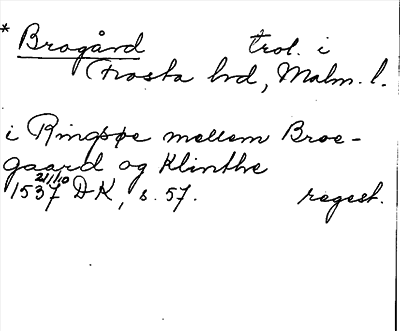 * Brogård trol. i
Frosta hd, Malm. l.
i Ringsøe mellem Broe-
gaard og Klinthe
21/10
1537 DK, s. 57. regest.